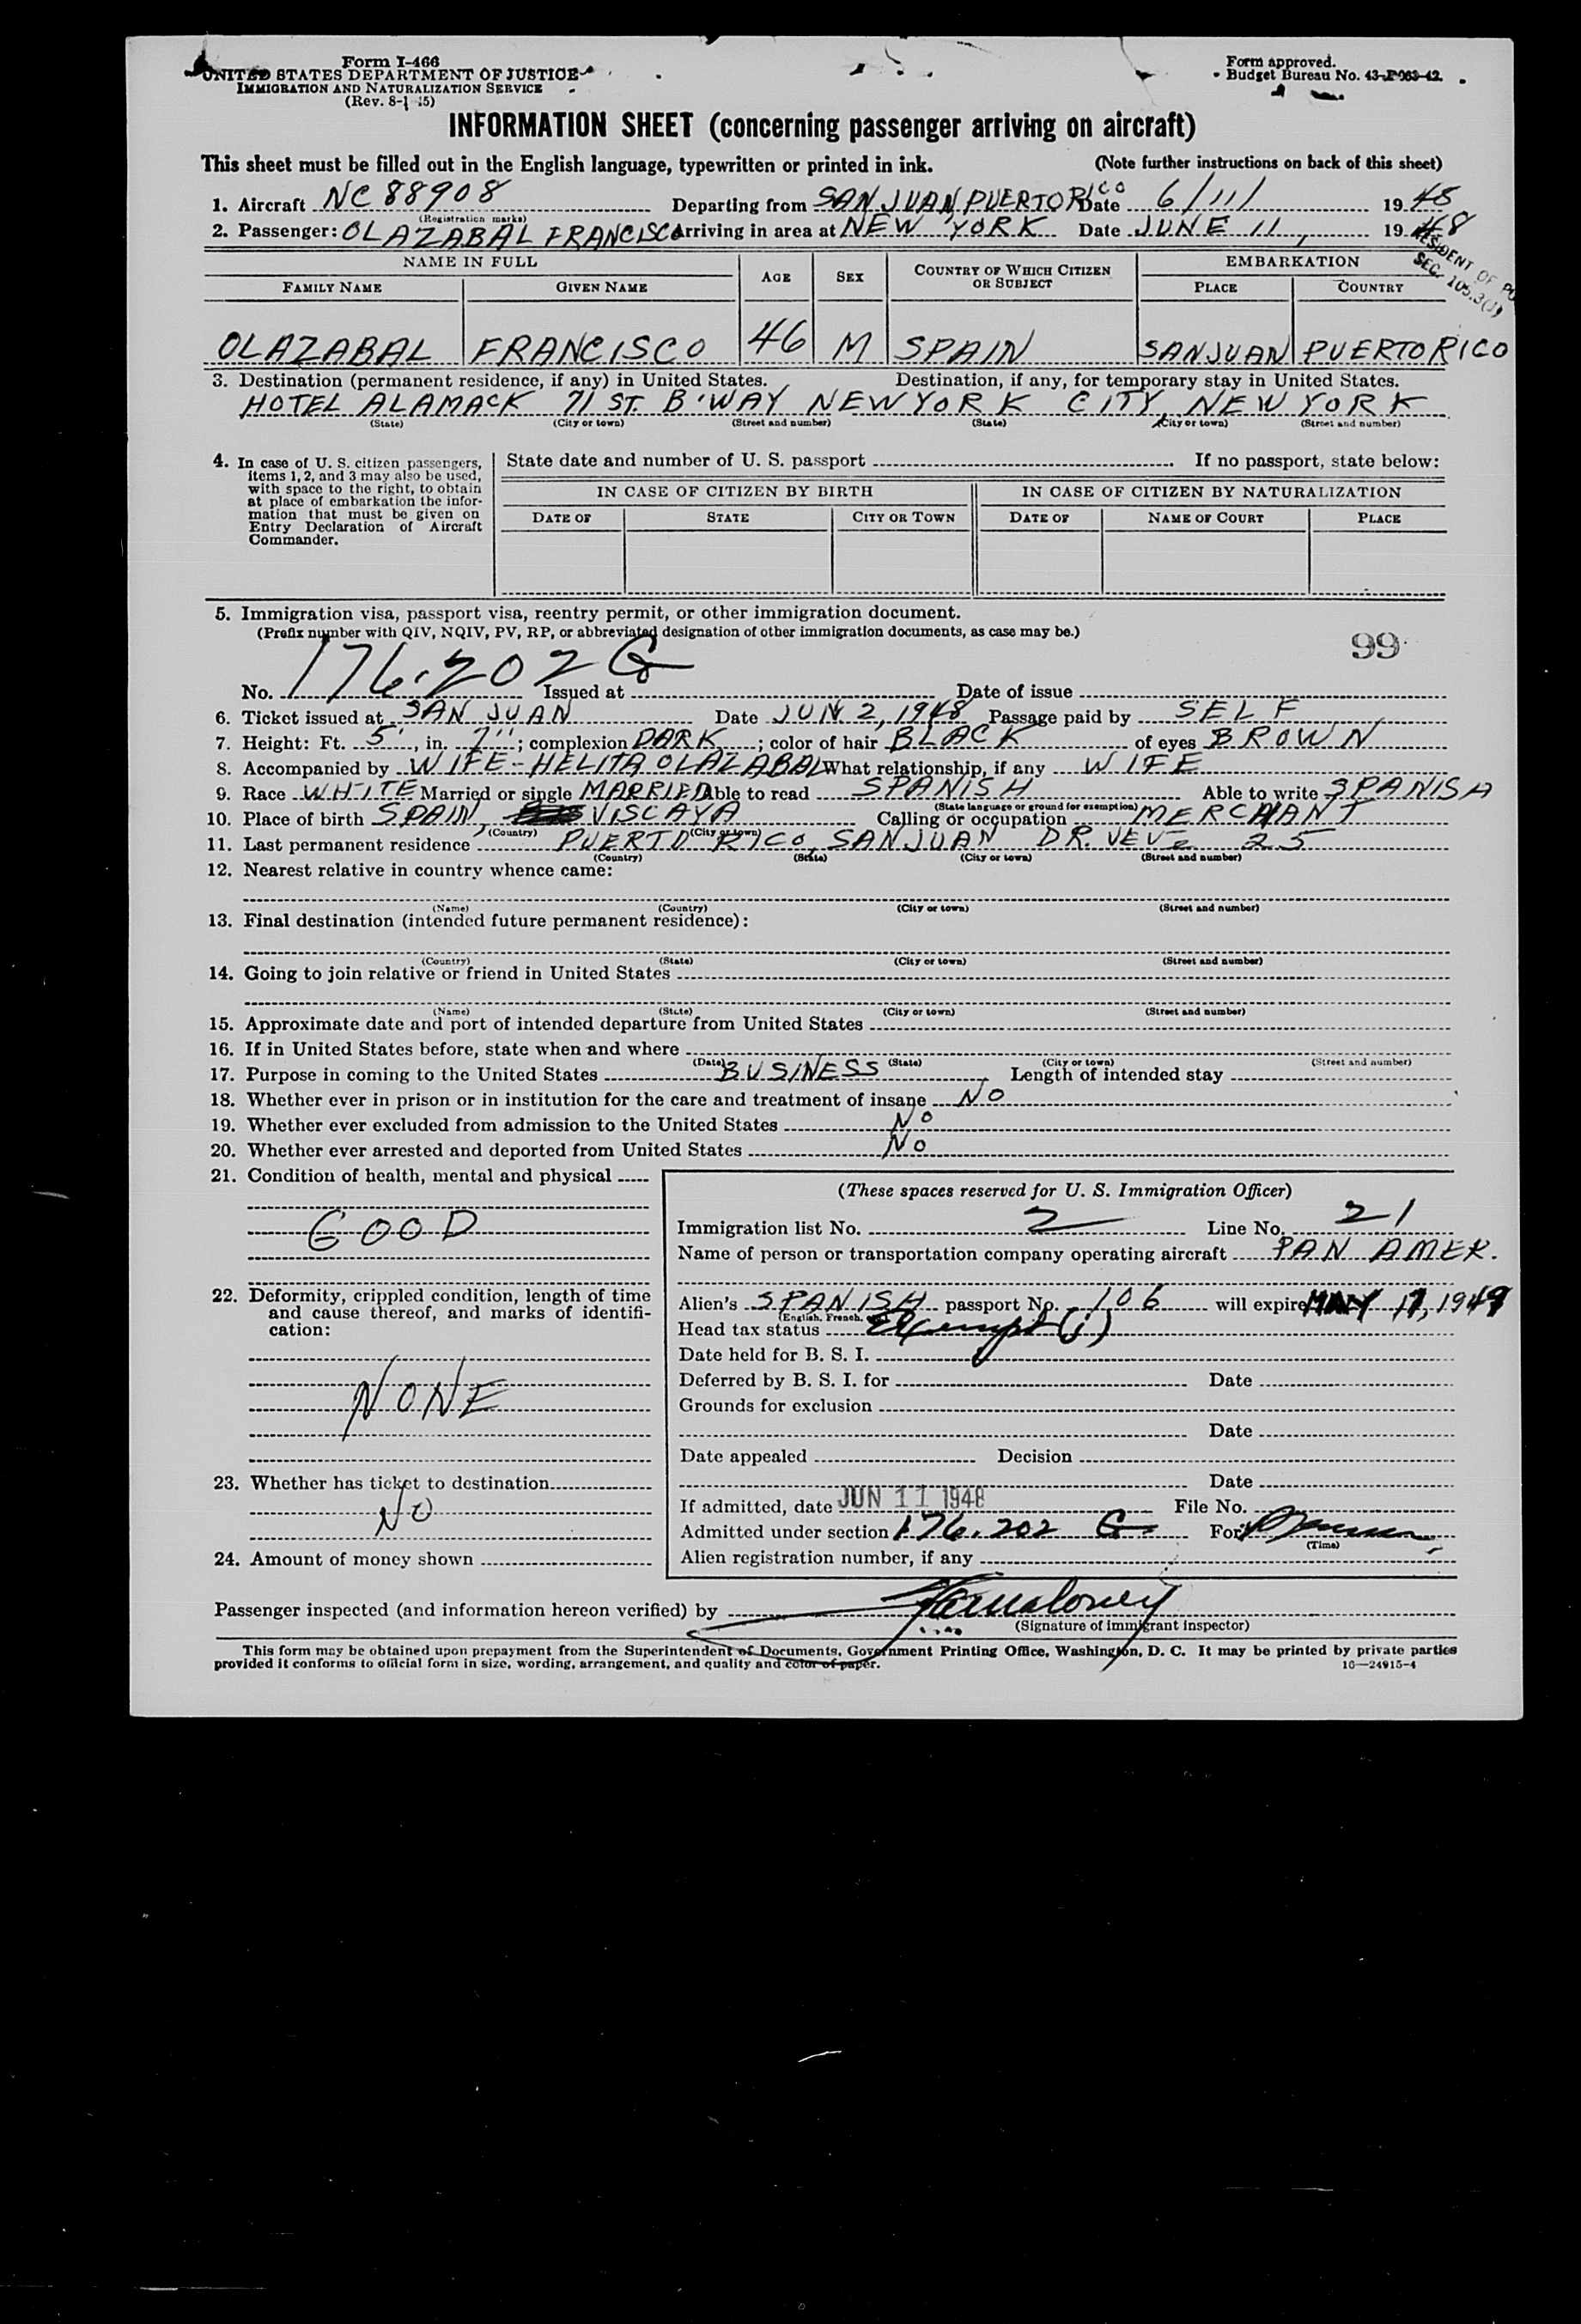 Form I-466
UNITED STATES DEPARTMENT OF JUSTICE
IMMIGRATION AND NATURALIZATION SERVICE
(Rev. 8-1-45)
Form approved.
Budget Bureau No. 43-R063-42.
INFORMATION SHEET (concerning passenger arriving on aircraft)
This sheet must be filled out in the English language, typewritten or printed in ink. (Note further instructions on back of this sheet)
1. Aircraft NC 88908 Departing from SAN JUAN, PUERTO RICO Date 6/11/ 1948
(Registration marks)
2. Passenger: OLAZABAL FRANCISCO Arriving in area at NEW YORK Date JUNE 11, 1948
RESIDENT OF
SEC. 105.3(J)
NAME IN FULL AGE SEX COUNTRY OF WHICH CITIZEN OR SUBJECT EMBARKATION
FAMILY NAME GIVEN NAME PLACE COUNTRY
OLAZABAL FRANCISCO 46 M SPAIN SAN JUAN PUERTO RICO
3. Destination (permanent residence, if any) in United States. Destination, if any, for temporary stay in United States.
HOTEL ALAMACK 71 ST. B'WAY NEW YORK CITY, NEW YORK
(State) (City or town) (Street and number) (State) (City or town) (Street and number)
4. In case of U. S. citizen passengers, items 1, 2, and 3 may also be used, with space to the right, to obtain at place of embarkation the information that must be given on Entry Declaration of Aircraft Commander.
State date and number of U. S. passport If no passport, state below:
IN CASE OF CITIZEN BY BIRTH IN CASE OF CITIZEN BY NATURALIZATION
DATE OF STATE CITY OR TOWN DATE OF NAME OF COURT PLACE
5. Immigration visa, passport visa, reentry permit, or other immigration document.
(Prefix number with QIV, NQIV, PV, RP, or abbreviated designation of other immigration documents, as case may be.)
99
No. 176.202 G Issued at Date of issue
6. Ticket issued at SAN JUAN Date JUN 2, 1948 Passage paid by SELF
7. Height: Ft. 5', in. 7''; complexion DARK; color of hair BLACK of eyes BROWN
8. Accompanied by WIFE - HELITA OLAZABAL What relationship, if any WIFE
9. Race WHITE Married or single MARRIED Able to read SPANISH Able to write SPANISH
(State language or ground for exemption)
10. Place of birth SPAIN, VISCAYA Calling or occupation MERCHANT
(Country) (City or town)
11. Last permanent residence PUERTO RICO, SAN JUAN DR. VEVE 25
(Country) (State) (City or town) (Street and number)
12. Nearest relative in country whence came:
(Name) (Country) (City or town) (Street and number)
13. Final destination (intended future permanent residence):
(Country) (State) (City or town) (Street and number)
14. Going to join relative or friend in United States
(Name) (State) (City or town) (Street and number)
15. Approximate date and port of intended departure from United States
16. If in United States before, state when and where
(Date) (State) (City or town) (Street and number)
17. Purpose in coming to the United States BUSINESS Length of intended stay
18. Whether ever in prison or in institution for the care and treatment of insane NO
19. Whether ever excluded from admission to the United States NO
20. Whether ever arrested and deported from United States NO
21. Condition of health, mental and physical
GOOD
22. Deformity, crippled condition, length of time and cause thereof, and marks of identification:
NONE
23. Whether has ticket to destination
NO
24. Amount of money shown
(These spaces reserved for U. S. Immigration Officer)
Immigration list No. 2 Line No. 21
Name of person or transportation company operating aircraft PAN AMER.
Alien's SPANISH passport No. 106 will expire MAY 17, 1949
(English, French, etc.)
Head tax status Exempt (j)
Date held for B. S. I.
Deferred by B. S. I. for Date
Grounds for exclusion
Date
Date appealed Decision
Date
If admitted, date JUN 11 1948 File No.
Admitted under section 176.202 G For
(Time)
Alien registration number, if any
Passenger inspected (and information hereon verified) by
(Signature of immigrant inspector)
This form may be obtained upon prepayment from the Superintendent of Documents, Government Printing Office, Washington, D. C. It may be printed by private parties
provided it conforms to official form in size, wording, arrangement, and quality and color of paper. 16—24915-4